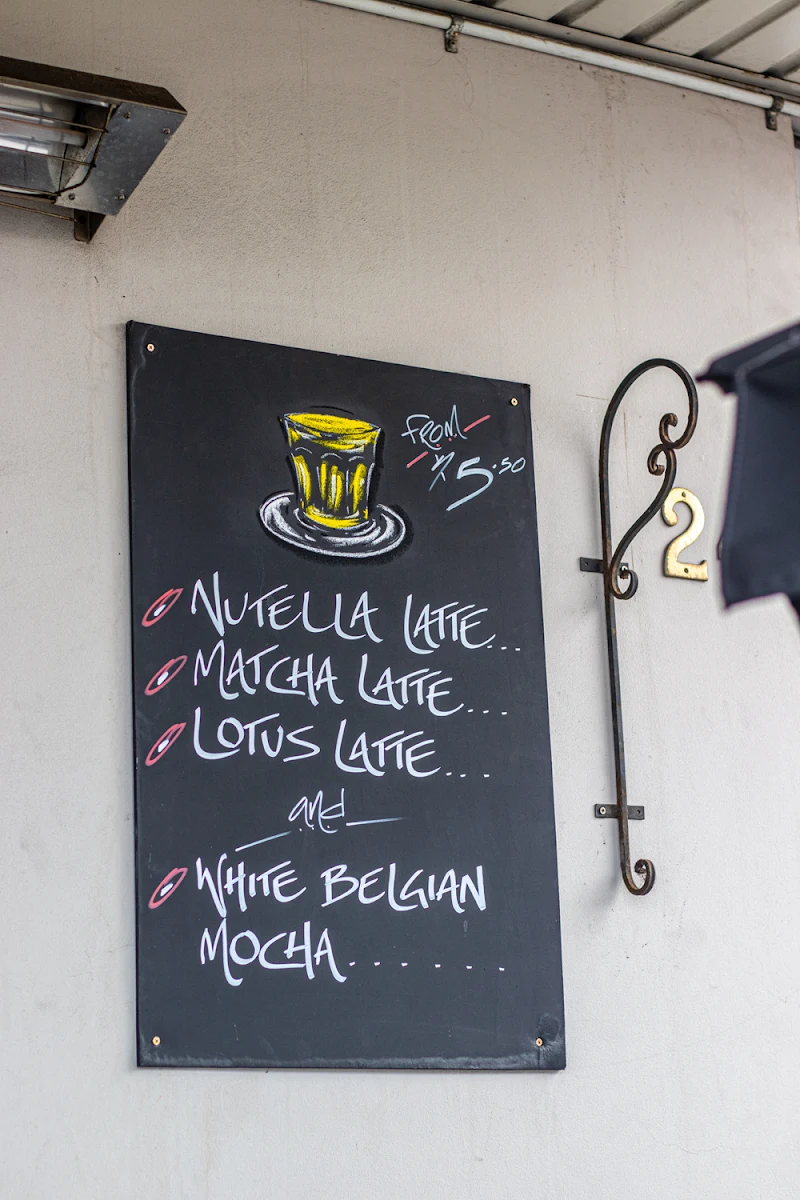 FROM
$5.50
NUTELLA LATTE...
MATCHA LATTE...
LOTUS LATTE...
and
WHITE BELGIAN
MOCHA......
2